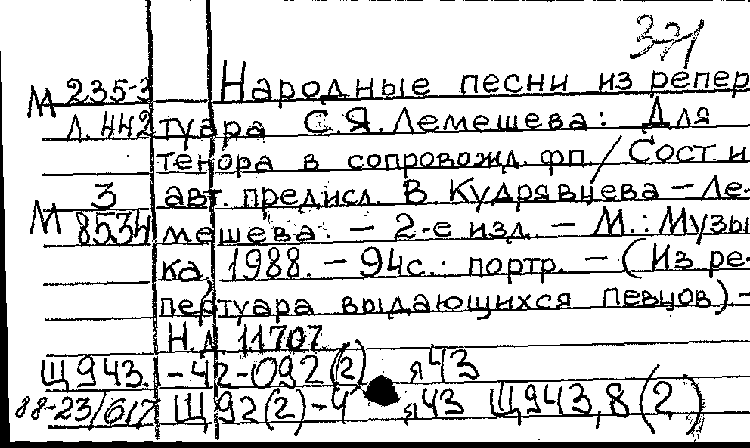 371
М 235-3 Народные песни из репер
Л. 442 туара С.Я. Лемешева: Для
тенора в сопровожд. фп. / Сост и
М 3 авт. предисл. В Кудрявцева – Ле-
8534 мешева. – 2-е изд. – М.: Музы
ка, 1988. – 94с.: портр. – (Из ре-
пертуара выдающихся певцов) –
Н.д 11707
Щ943. -42-092(2) я43
88-23/617 Щ92(2)-4 я43 Щ943,8(2)